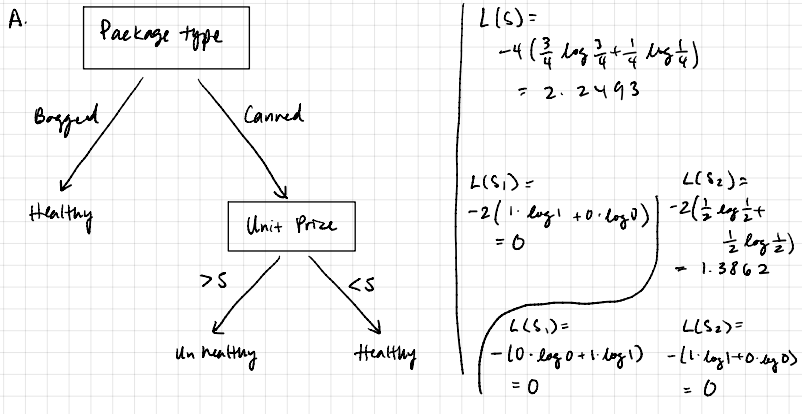 A.
Package type
Bagged
Canned
Healthy
Unit Prize
>5
<5
Unhealthy
Healthy
L(S) =
-4 (3/4 log 3/4 + 1/4 log 1/4)
= 2.2493
L(S₁) =
-2 (1·log1 + 0·log0)
= 0
L(S₂) =
-2(1/2 log 1/2 +
1/2 log 1/2)
= 1.3862
L(S₁) =
-(0·log0 + 1·log1)
= 0
L(S₂) =
-(1·log1+0·log0)
= 0